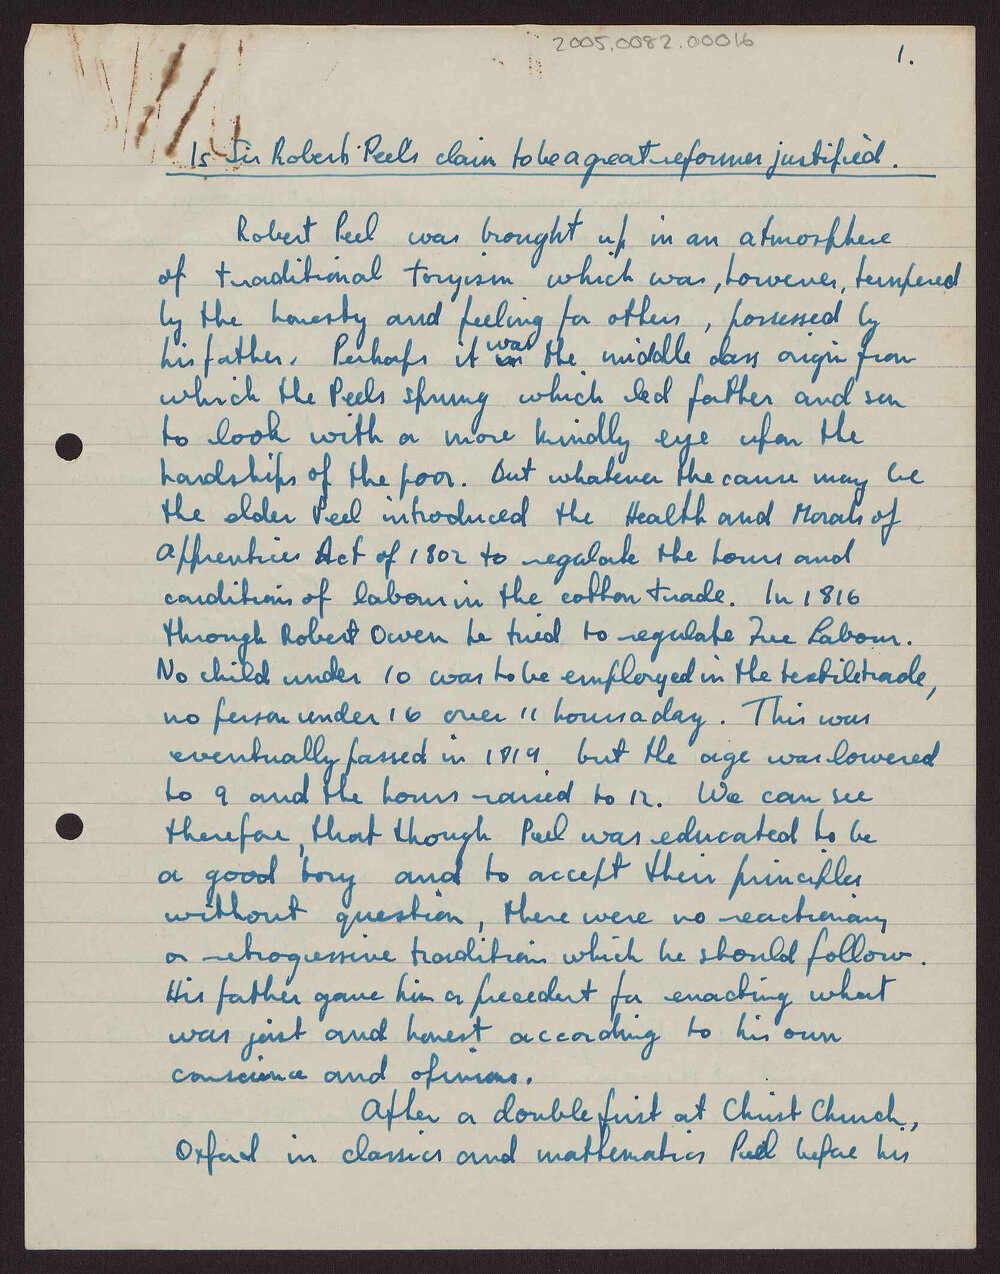 2005.0082.00016
1.
Is Sir Robert Peel's claim to be a great reformer justified.
Robert Peel was brought up in an atmosphere
of traditional toryism which was, however, tempered
by the honesty and feeling for others, possessed by
his father. Perhaps it was the middle class origin from
which the Peels sprung which led father and son
to look with a more kindly eye upon the
hardships of the poor. But whatever the cause may be
the elder Peel introduced the Health and Morals of
apprentices Act of 1802 to regulate the hours and
conditions of labour in the cotton trade. In 1816
through Robert Owen he tried to regulate Free Labour.
No child under 10 was to be employed in the textile trade,
no person under 16 over 11 hours a day. This was
eventually passed in 1819 but the age was lowered
to 9 and the hours raised to 12. We can see
therefore, that though Peel was educated to be
a good tory and to accept their principles
without question, there were no reactionary
or retrogressive traditions which he should follow.
His father gave him a precedent for enacting what
was just and honest according to his own
conscience and opinions.
After a double first at Christ Church,
Oxford in classics and mathematics Peel before his